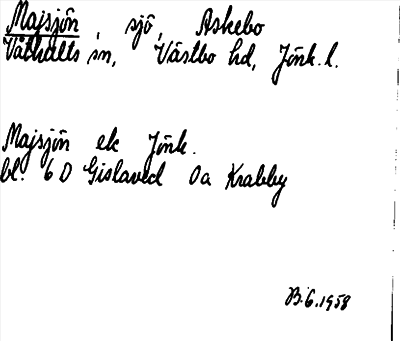 Majsjön, sjö, Askebo
Våthults sn, Västbo hd, Jönk. l.
Majsjön ek Jönk.
bl. 6D Gislaved 0a Krabby
B.6.1958